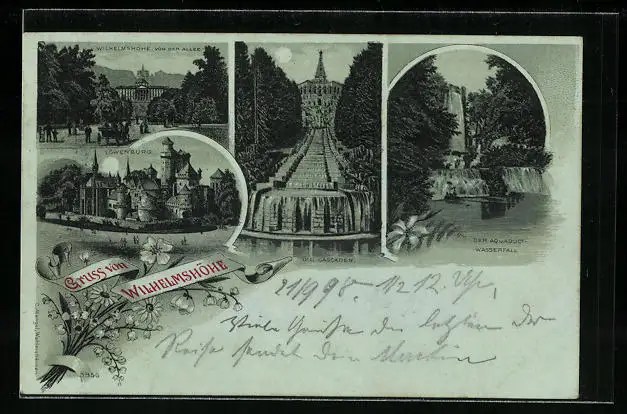 WILHELMSHÖHE, VON DER ALLEE
LÖWENBURG
DIE CASCADEN.
DER AQUADUCT-
WASSERFALL
Gruss von
WILHELMSHÖHE
21/9 98. 12 12 Uhr,
Viele Grüße die letzten der
Reise sendet Dein Martin
3856